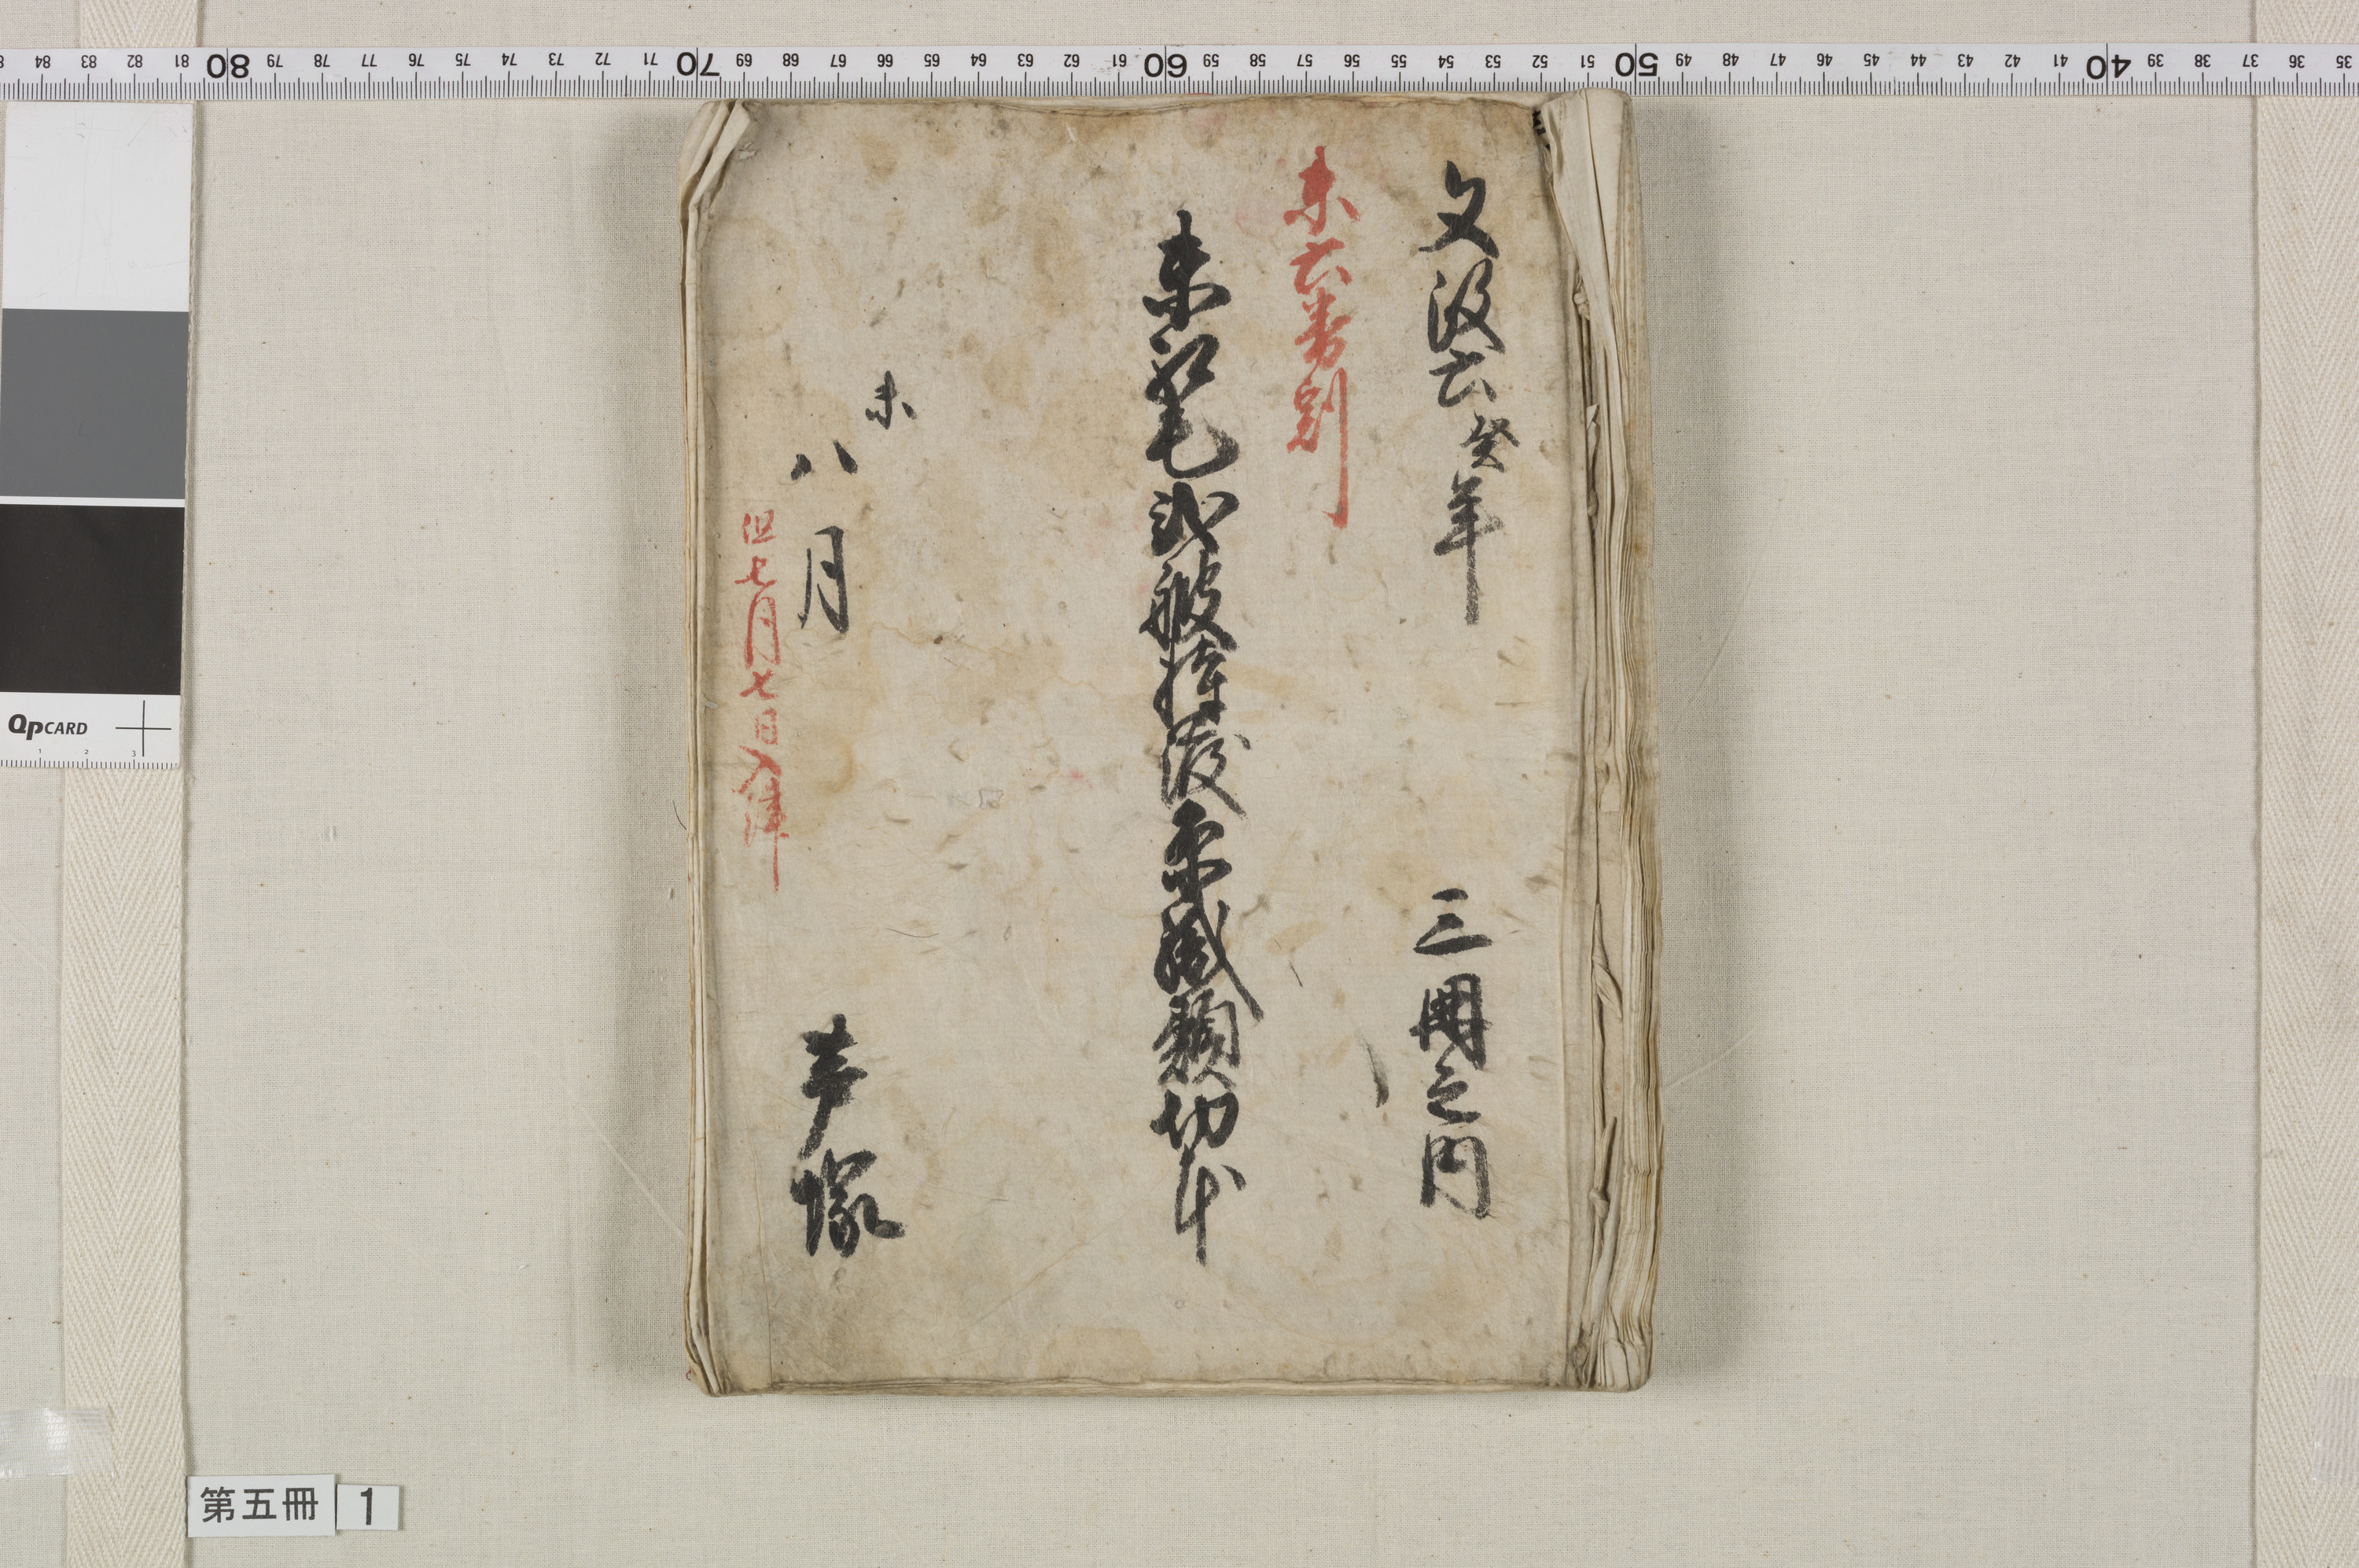 84 83 82 81 80 79 78 77 76 75 74 73 72 71 70 69 68 67 66 65 64 63 62 61 60 59 58 57 56 55 54 53 52 51 50 49 48 47 46 45 44 43 42 41 40 39 38 37 36 35
文政六癸年 三冊之内
未六番割
未紅毛弐艘持渡織類切本
未
八月 芦塚
但七月七日入津
QPCARD
1 2 3
第五冊 1